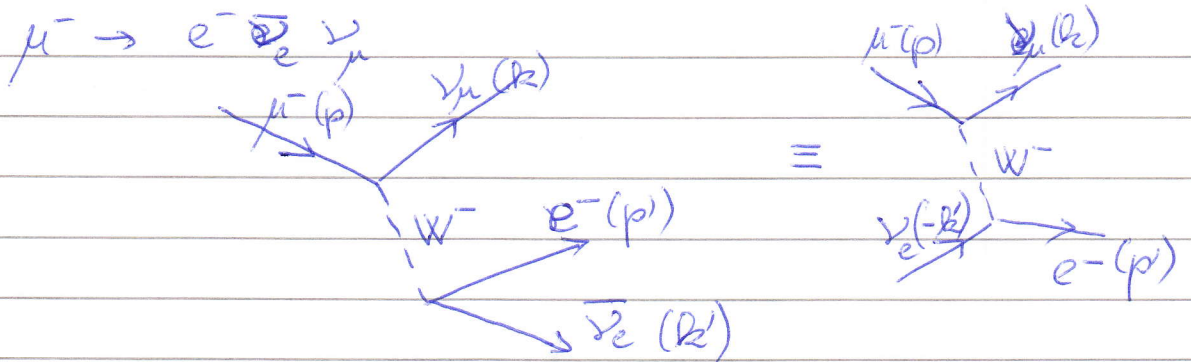 μ⁻ → e⁻ ν̄_e ν_μ
μ⁻(p) ν_μ(k)
W⁻
e⁻(p')
ν̄_e (k')
≡
μ⁻(p) ν_μ(k)
W⁻
ν_e(-k')
e⁻(p')